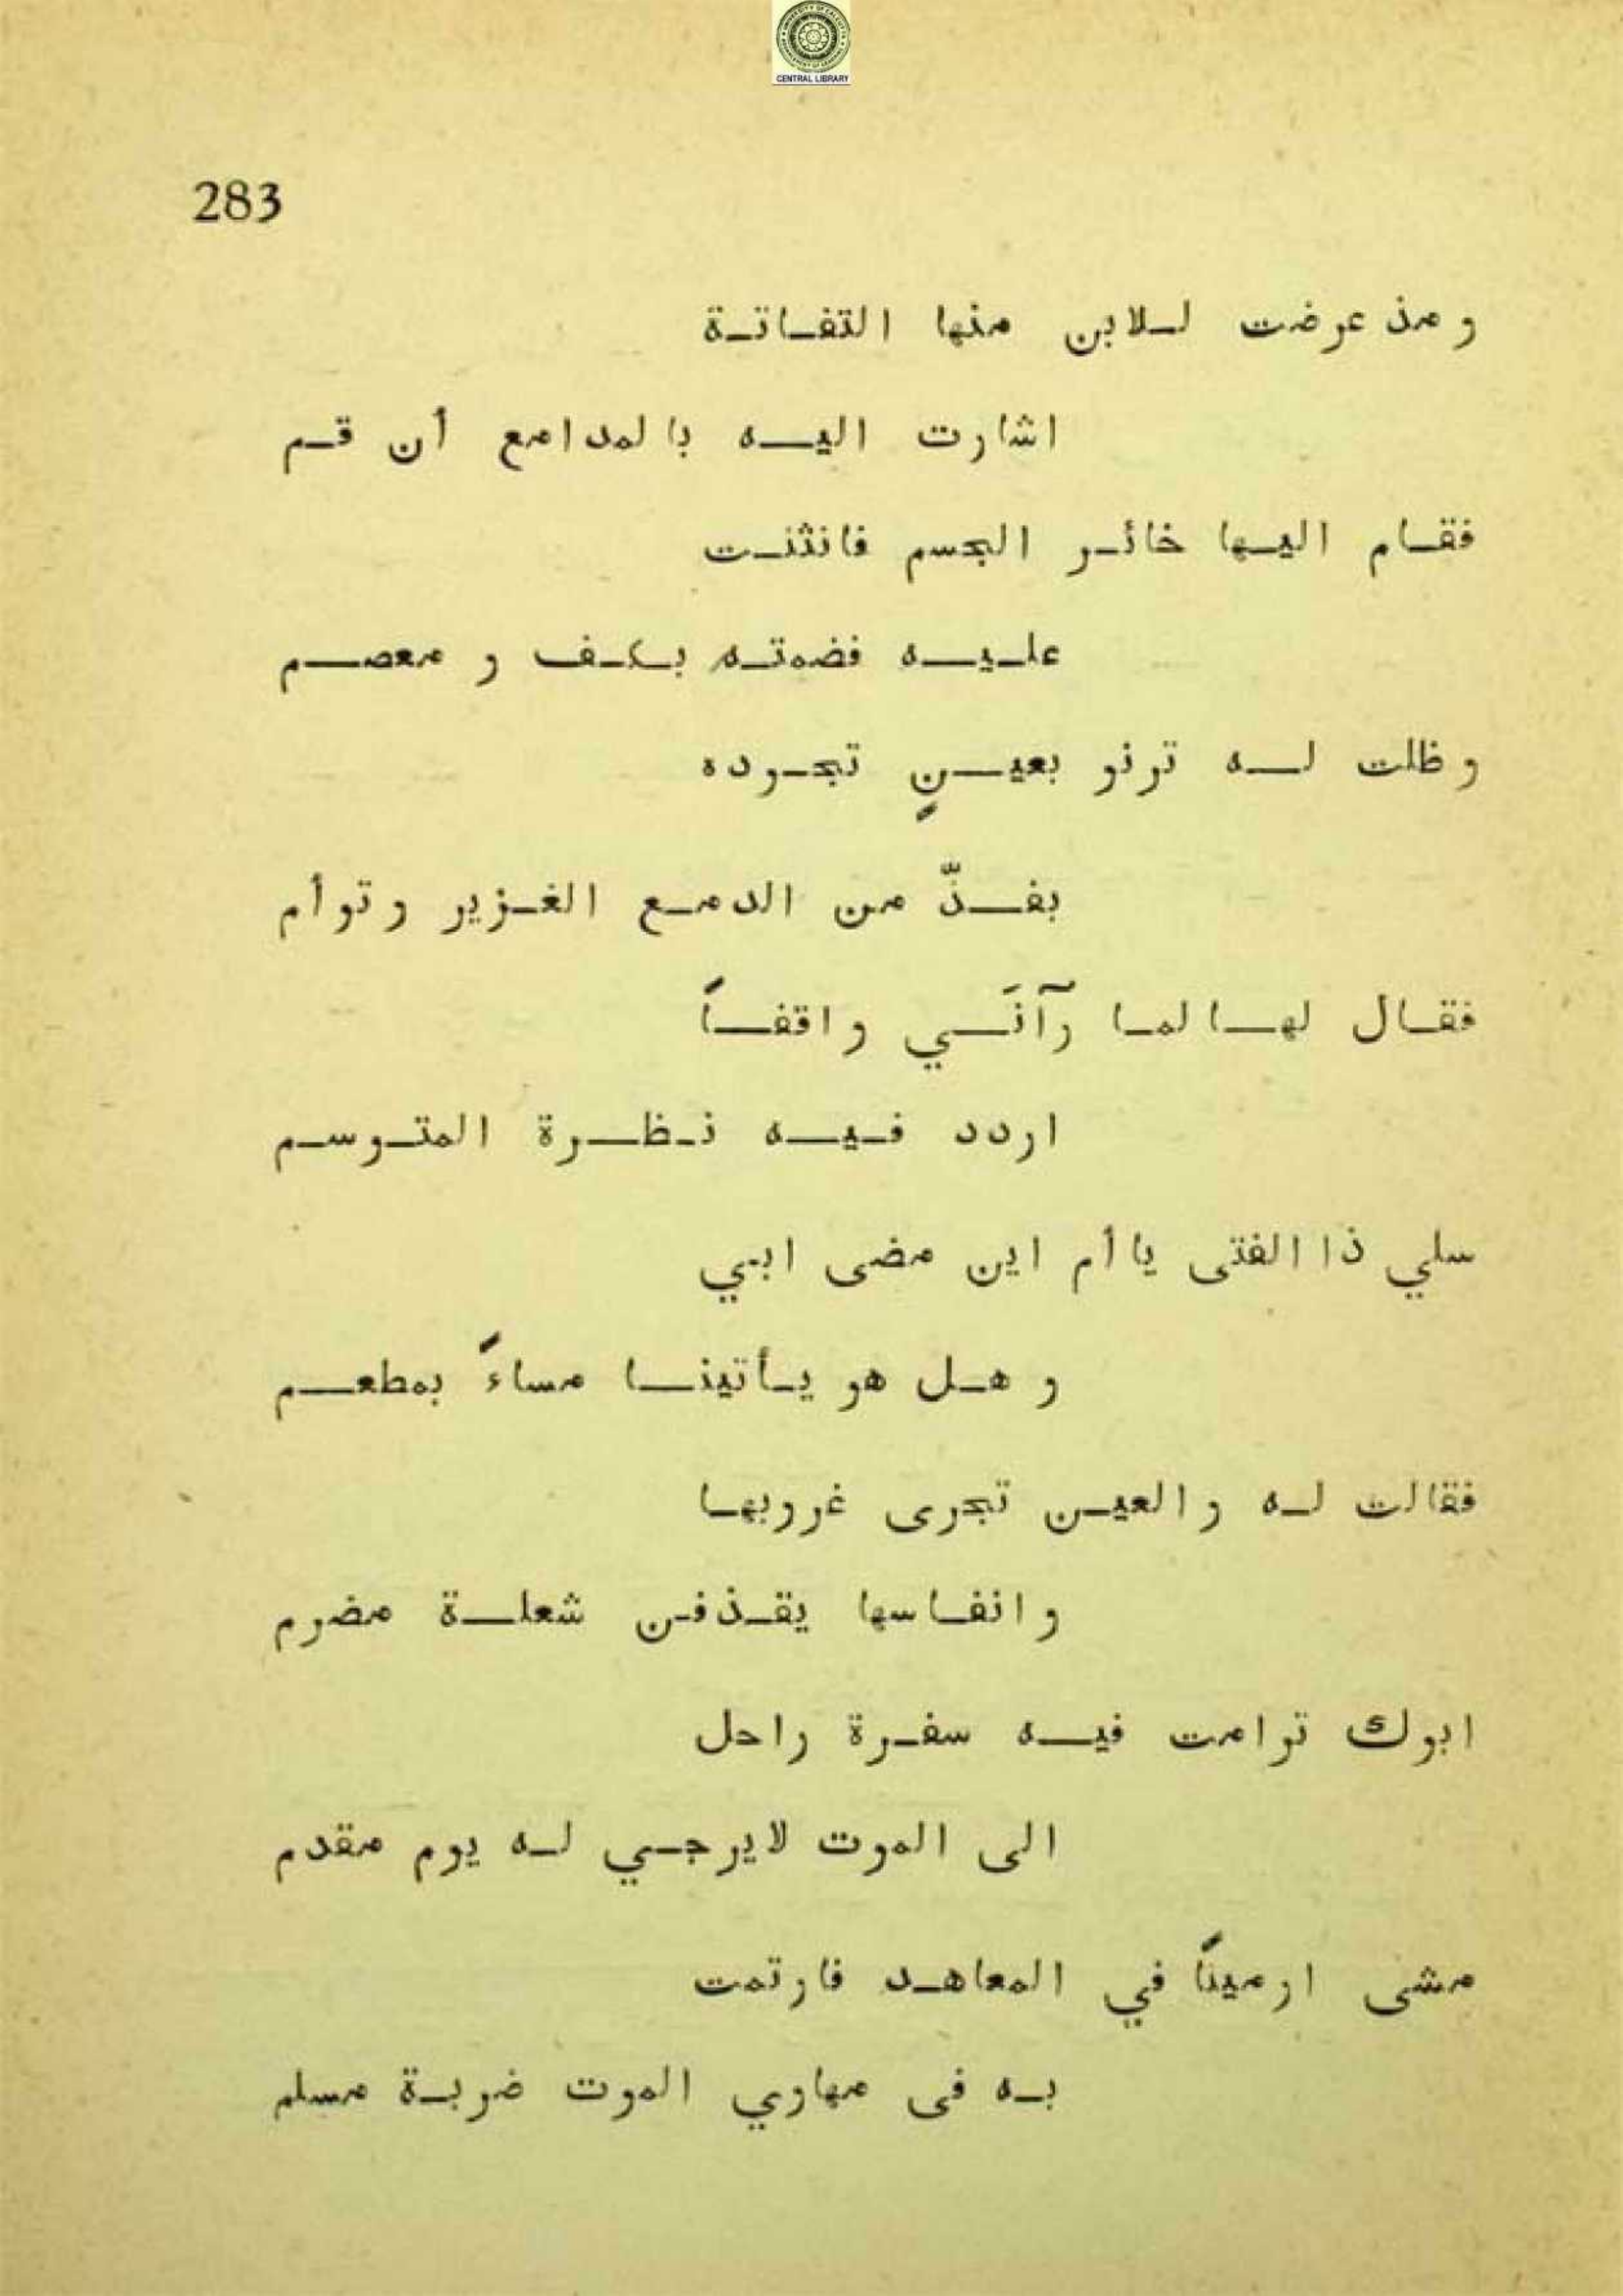 CENTRAL LIBRARY
283
ومذ عرضت للابن منها التفاتة
اشارت اليه بالمدامع أن قم
فقام اليها خائر الجسم فانثنت
عليه فضمته بكف و معصم
وظلت له ترنو بعينٍ تجوده
بفذّ من الدمع الغزير وتوأم
فقال لها لما رآنَي واقفاً
اردد فيه نظرة المتوسم
سلي ذا الفتى يا أم اين مضى ابي
وهل هو يأتينا مساءً بمطعم
فقالت له والعين تجرى غروبها
وانفاسها يقذفن شعلة مضرم
ابوك ترامت فيه سفرة راحل
الى الموت لايرجي له يوم مقدم
مشى ارميناً في المعاهد فارتمت
به فى مهاوي الموت ضربة مسلم